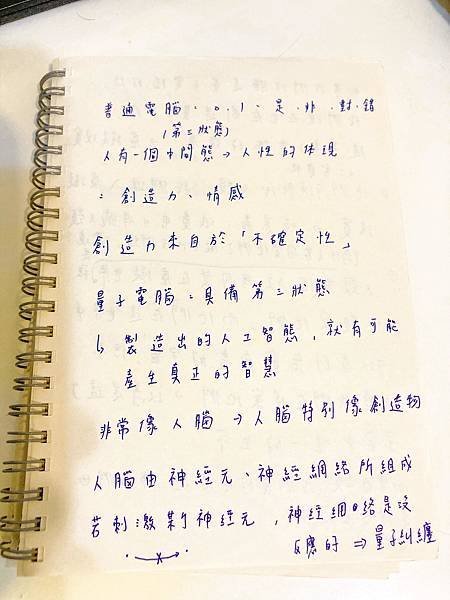 普通電腦、0.1、是.非.對.錯
(第三狀態)
人有一個中間態→人性的体現
：創造力、情感
創造力來自於「不確定性」
量子電腦：具備第三狀態
↳ 製造出的人工智態，就有可能
產生真正的智慧
非常像人腦 → 人腦特別像創造物
人腦由神經元、神經網絡所組成
若刺激某个神經元，神經網絡是沒
反應的 ⇒ 量子糾纏